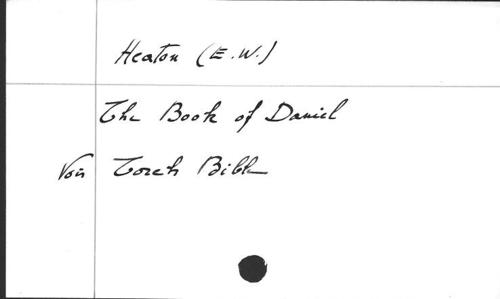 Heaton (E.W.)
The Book of Daniel
Voir Torch Bible